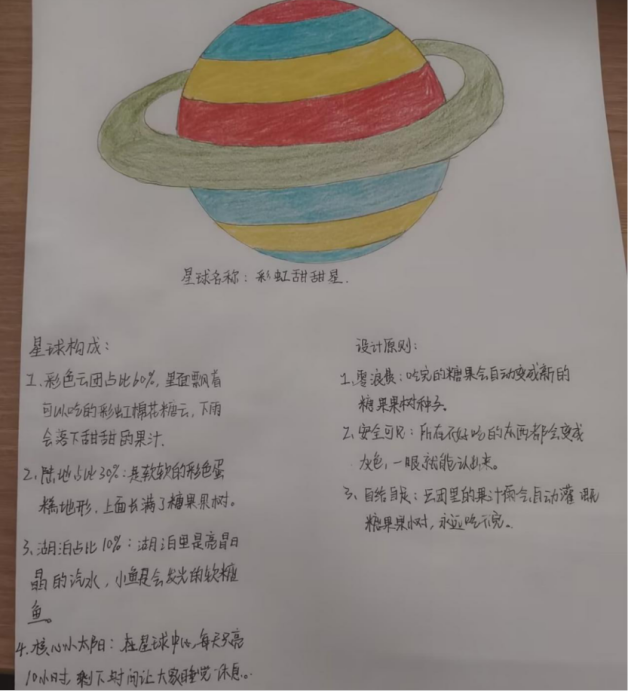 星球名称：彩虹甜甜星.
星球构成：
1、彩色云团占比60%，里面飘有
可以吃的彩虹棉花糖云，下雨
会落下甜甜的果汁.
2、陆地占比30%：是软软的彩色蛋
糕地形，上面长满了糖果果树。
3、湖泊占比10%：湖泊里是亮晶
晶的汽水，小鱼是会发光的软糖
鱼。
4、核心小太阳：在星球中心，每天只亮
10小时，剩下时间让大家睡觉休息。
设计原则：
1、零浪费：吃完的糖果会自动变成新的
糖果果树种子.
2、安全可口：所有不好吃的东西都会变成
灰色，一眼就能认出来。
3、自给自足：云团里的果汁雨会自动灌溉
糖果果树，永远吃不完。